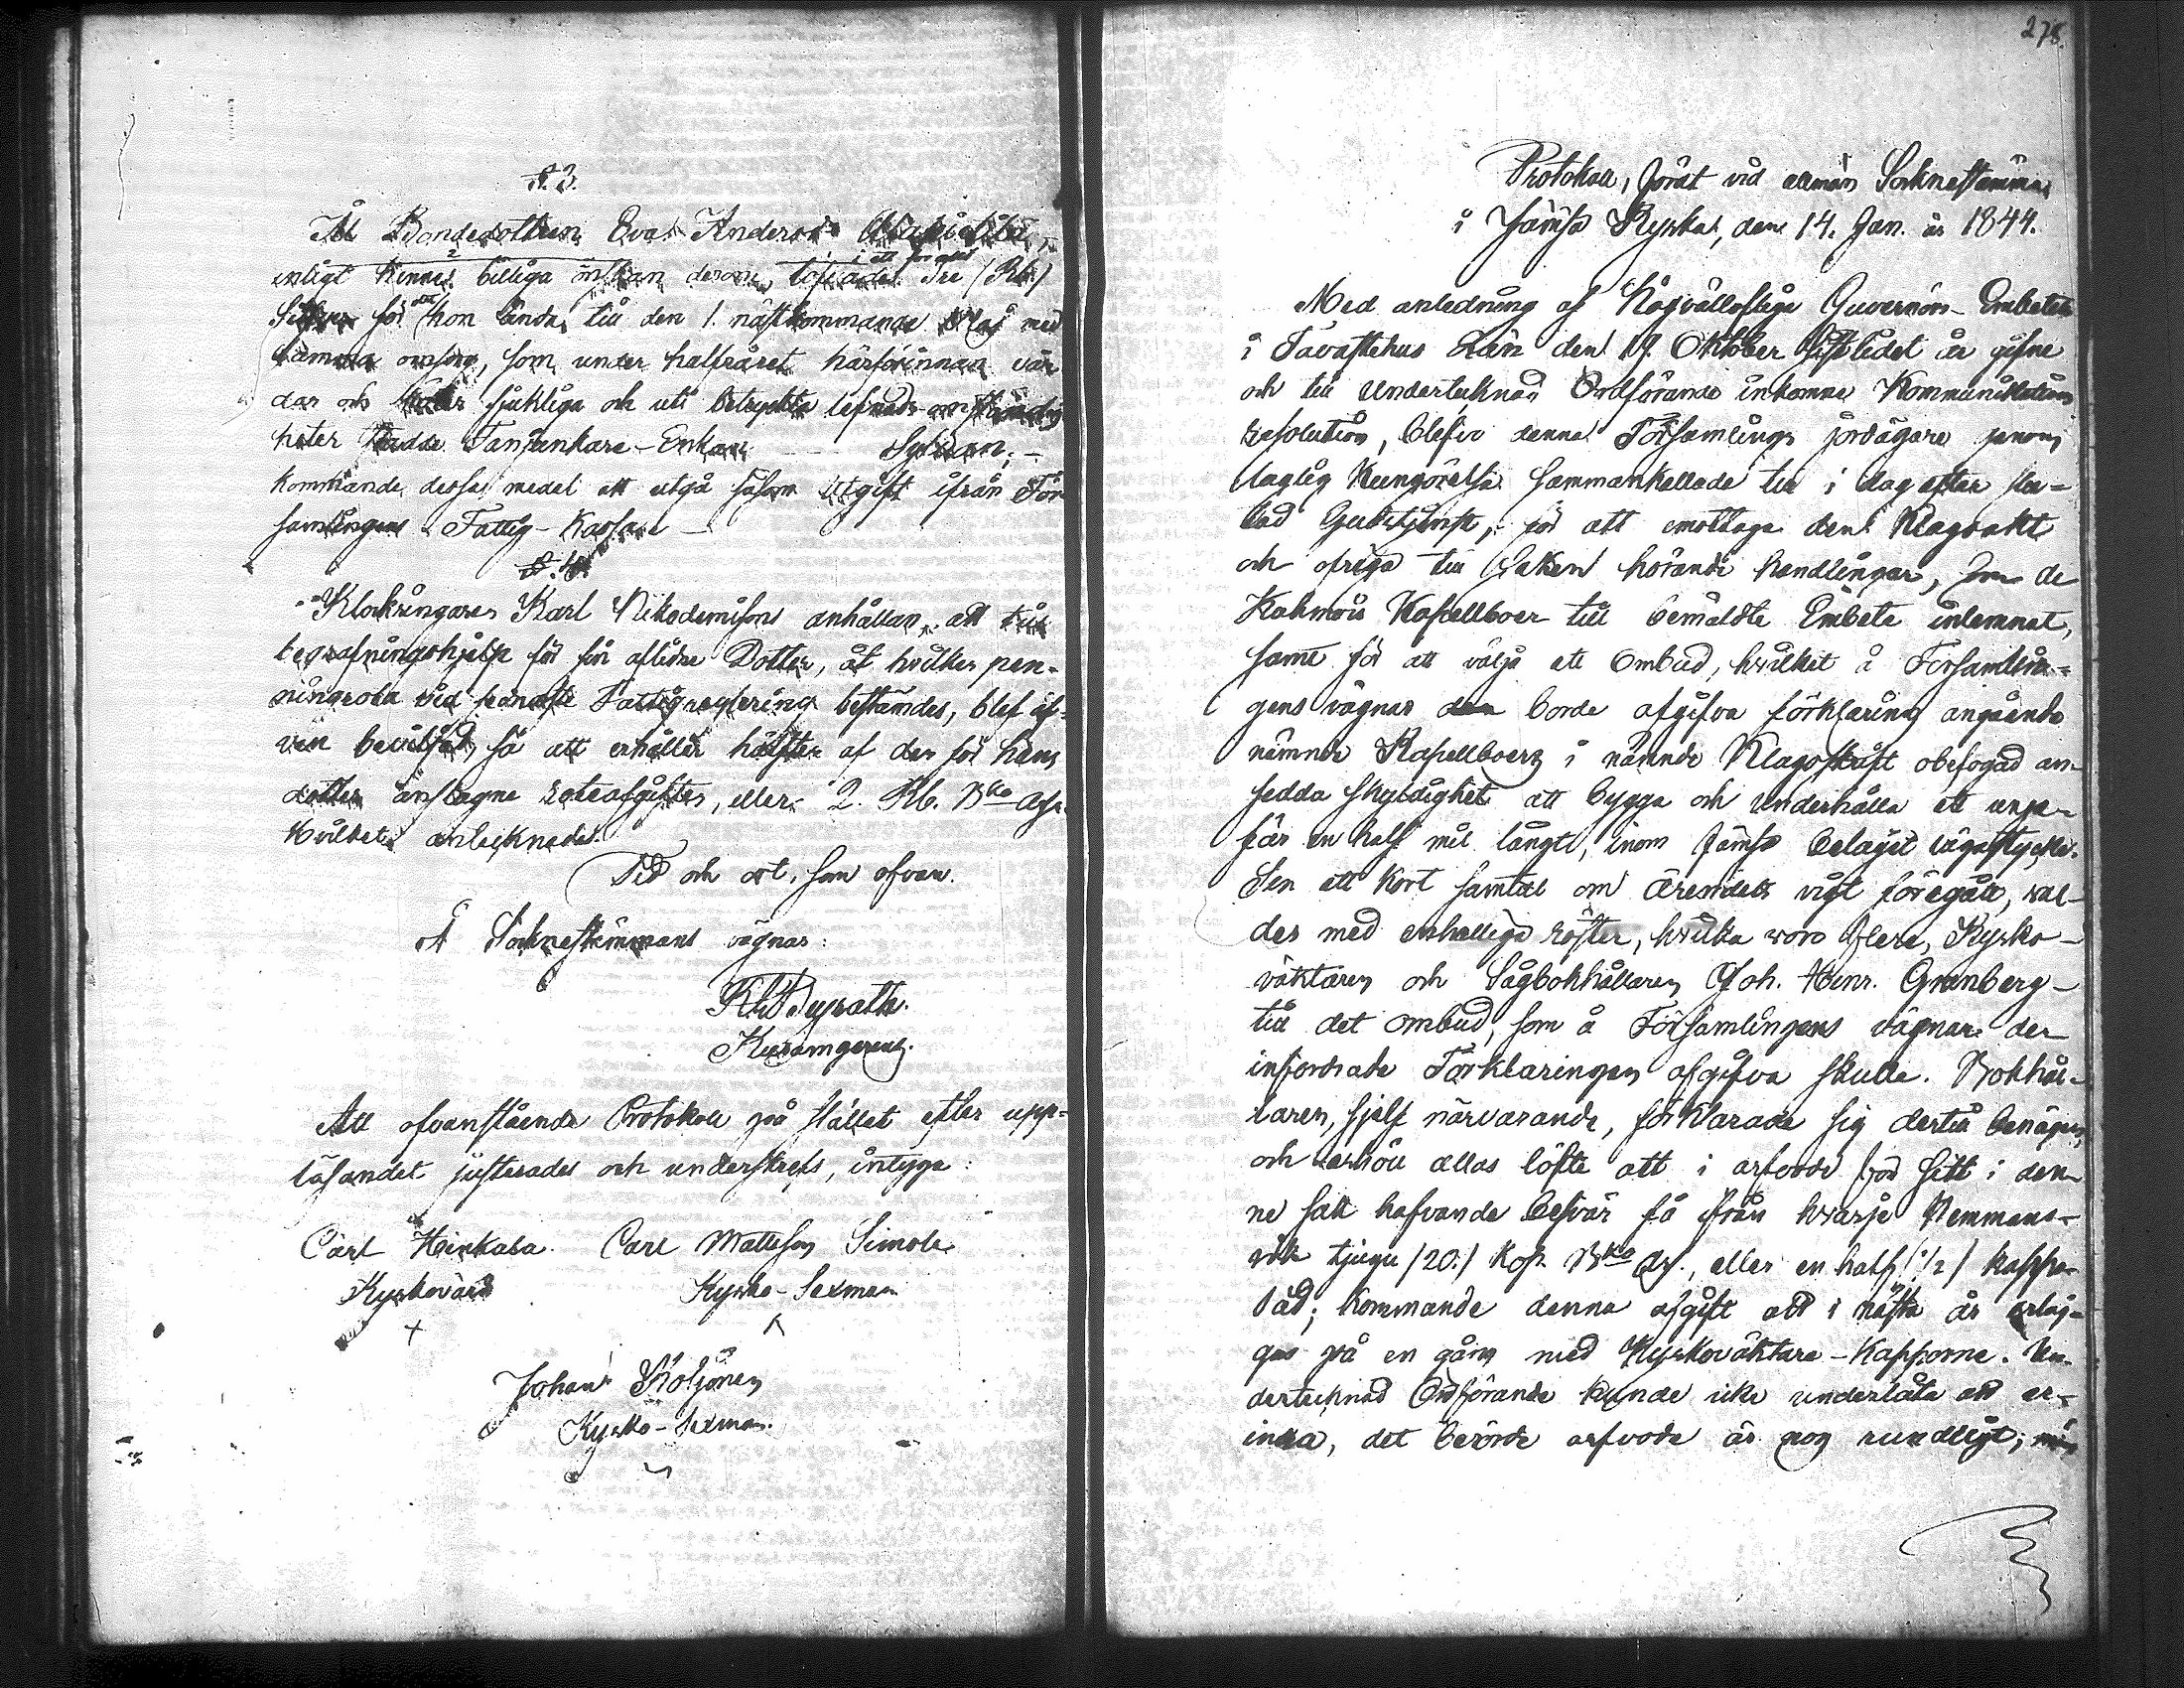 §. 3.
Åt Bondedottren Eva Andersd:r
enligt hennes billiga önskan derom, Tre (Rb.)
i ett för allt
Silfver för att hon ända till den 1. nästkommande Maj med
samma omsorg, som under halfåret härförinnan vår-
dar och sköter sjukliga och uti betryckta lefnads-omständig
heter stadda Tanjunkare-Enkan
kommande dessa medel att utgå såsom utgift ifrån För-
samlingens Fattig-Kassa.
§. 4.
Klockringaren Karl Nikodemisons anhållan, att till
begrafningshjelp för sin aflidne Dotter, åt hvilken pen-
ningrota vid senaste Fattigreglering bestämdes, blef äf-
ven beviljad, så att erhåller hälften af den för hans
dotter anslagne roteafgiften, eller 2. Rb. Bko Ass.
Hvilket antecknades.
Tid och ort, som ofvan.
Å Sockne­stämmans vägnar:
Att ofvanstående Protokoll på stället efter upp-
läsandet justerades och underskrefs, intyga:
Carl Heinkala Carl Mattsson Simola
Kyrkovärd Kyrko-Sexman
Johan Koljonen
Kyrko-Sexman.
278.
Protokoll, fördt vid allmän Sockne­stämma
i Jämsä Kyrka, den 14. Jan. år 1844.
Med anledning af Högvälloflige Guvernörs-Embetets
i Tavastehus Län den 19. Oktober sistledet år gifne
och till Undertecknad Ordförande inkomne Kommunikations
resolution, blefvo denna Församlings jordägare genom
laglig Kungörelse sammankallade till i dag efter slu-
tad Gudstjenst, för att emottaga den Klagoakt
och öfriga till saken hörande handlingar, som de
Kuhmois Kapellboer till bemäldte Embete inlemnat,
samt för att välja ett Ombud, hvilket å Församlin-
gens vägnar borde afgifva förklaring angående
nämnde Kapellboers i nämnde Klagoskrift obefogad an-
sedda skyldighet att bygga och underhålla ett unge-
fär en half mil långt, inom Jämsä belägit vägastycke.
Sen ett kort samtal om ärendets vigt föregått, val-
des med enhällige röster, hvilka voro flere, Kyrko-
väktaren och Sågbokhållaren Joh. Henr. Granberg
till det ombud, som å Församlingens vägnar den
infordrade Förklaringen afgifva skulle. Bokhål-
laren, sjelf närvarande, förklarade sig dertill benägen,
och erhöll allas löfte att i arfvode för sitt i den-
ne sak hafvande besvär få ifrån hvarje Hemmans-
rök tjugu (20.) Kop. Bko Ass., eller en half (1/2) kappe
Säd; kommande denna afgift att i nästa år erläg-
gas på en gång med Kyrkoväktare-Kapporne. Un-
dertecknad Ordförande kunde icke underlåta att er-
inra, det berörde arfvode är nog rundligt;